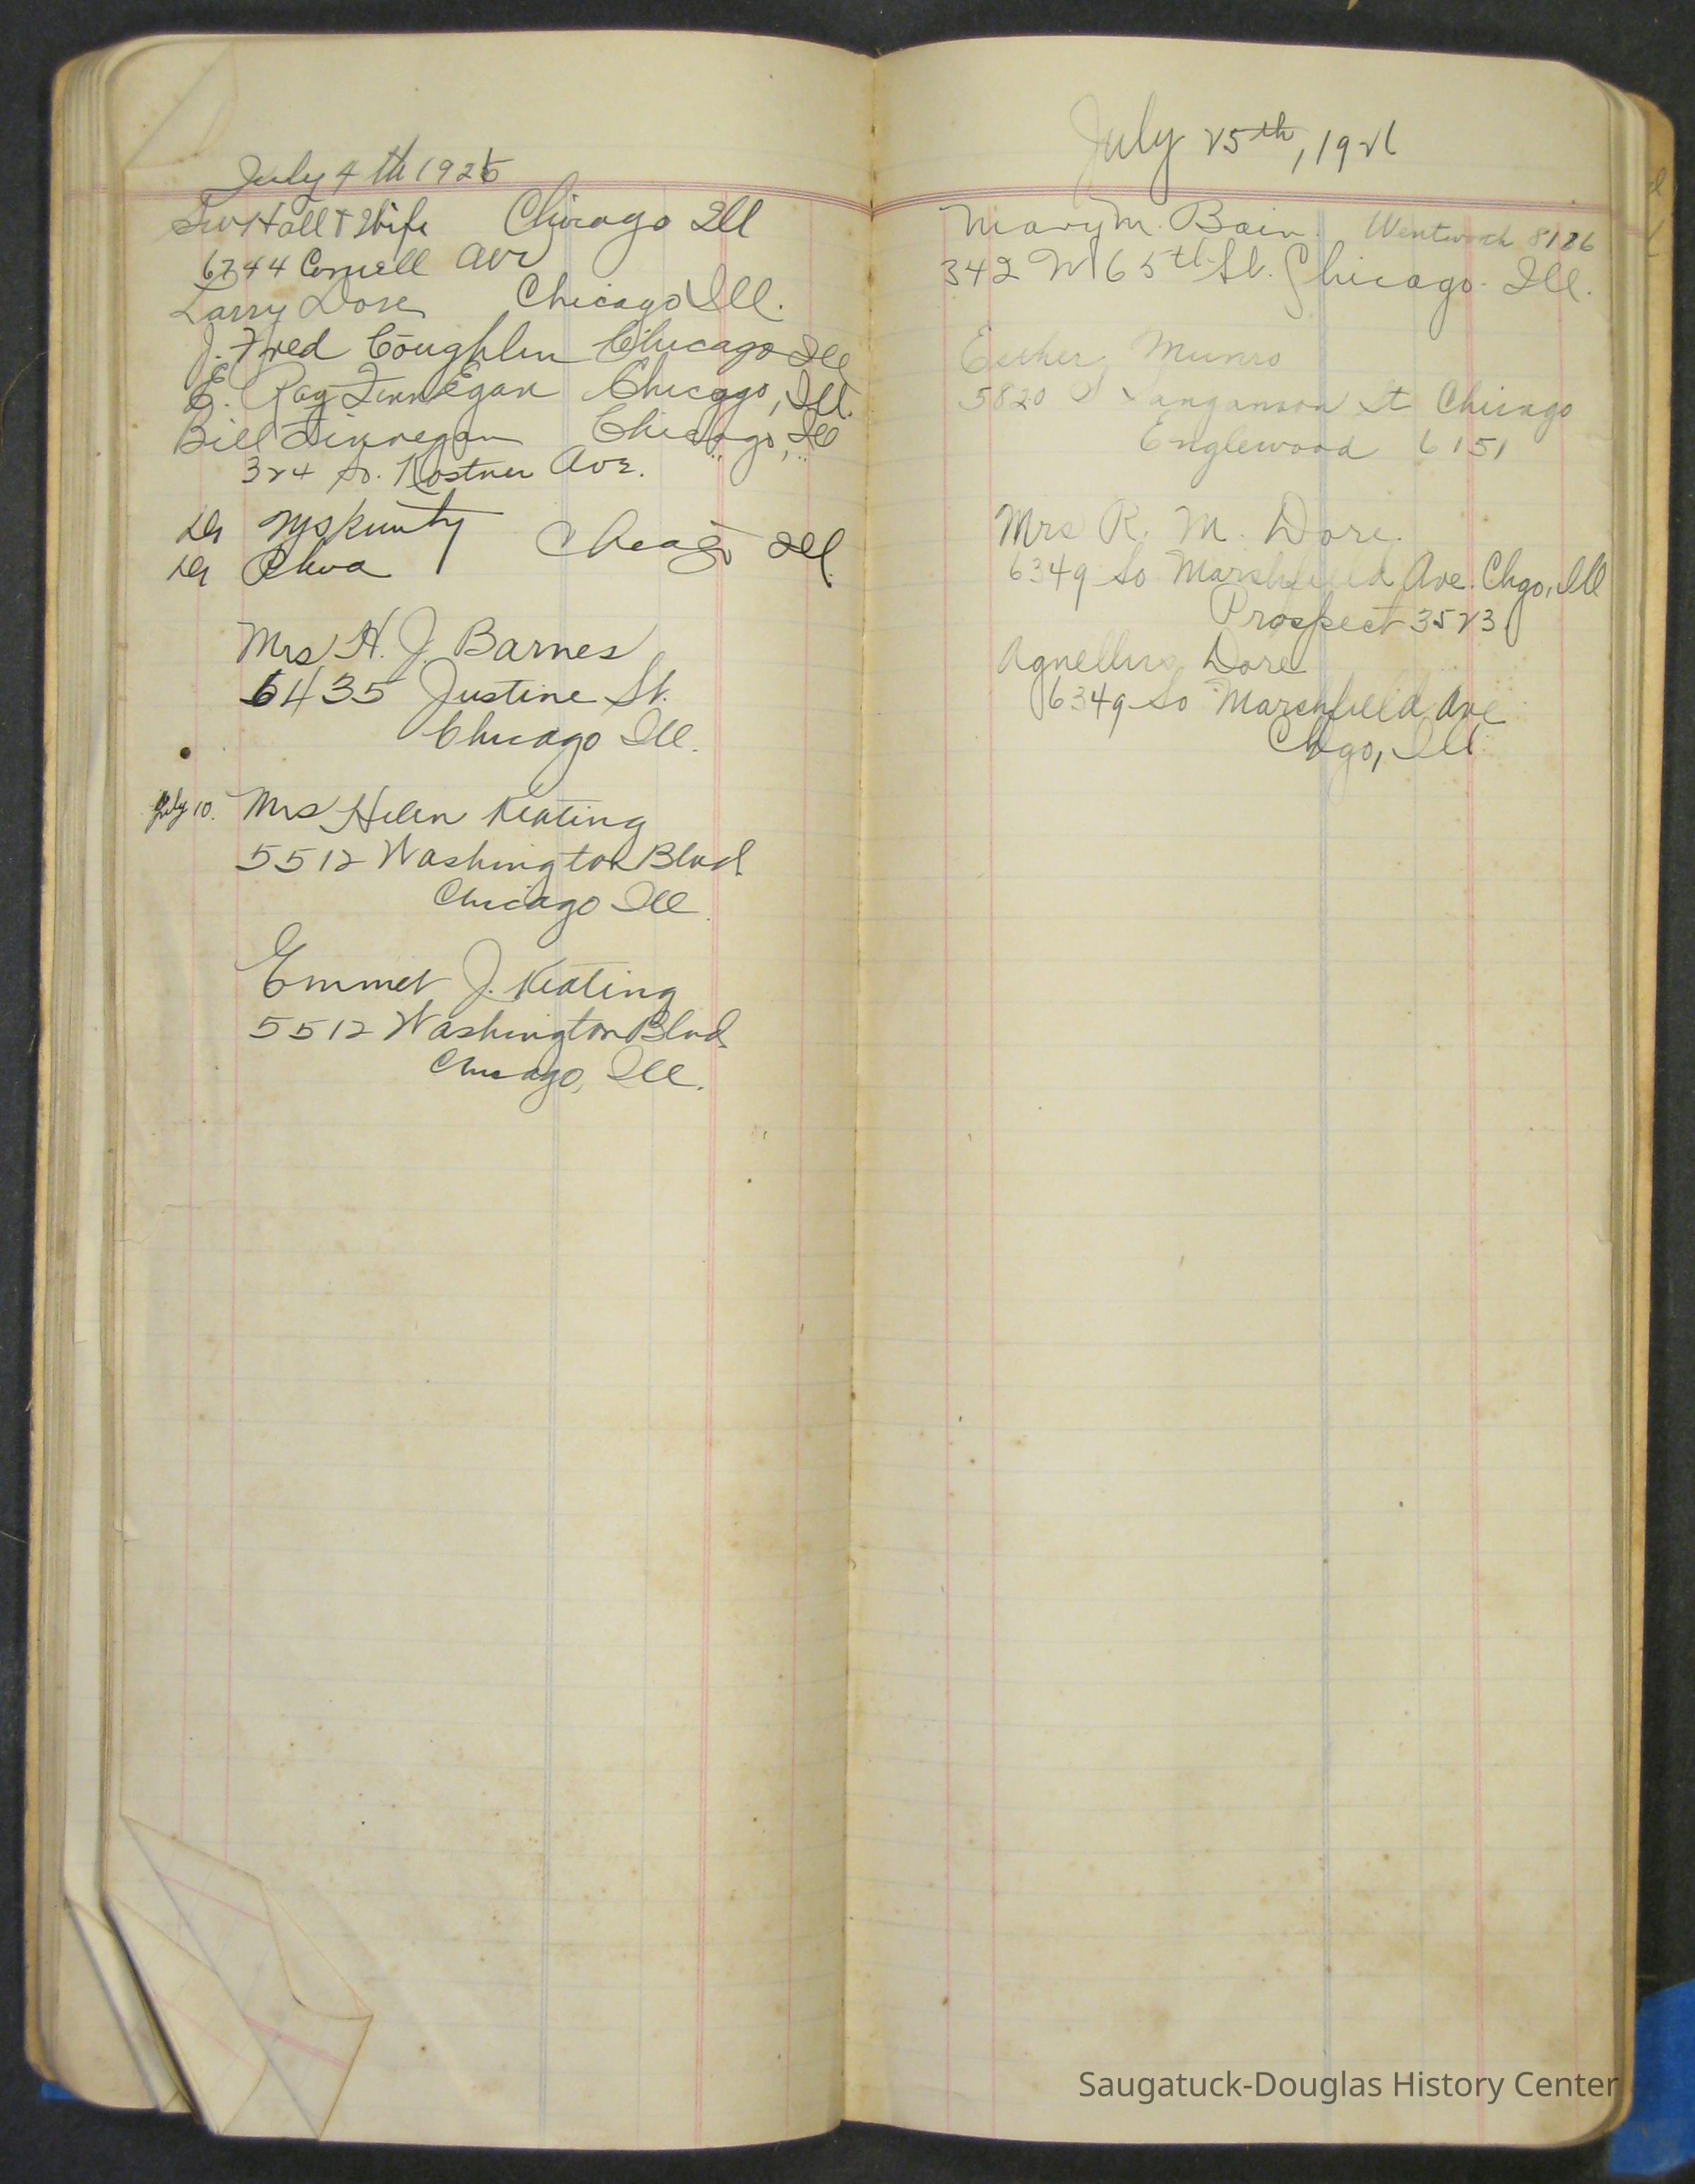 July 4th 1926
Hall & Wife Chicago Ill
6744 Cornell Ave
Larry Dore Chicago Ill.
J. Fred Coughlin Chicago Ill
E. Ray Finnegan Chicago, Ill.
Bill Finnegan Chicago, Ill
324 So. Kostner Ave.
Chicago Ill.
Mrs H. J. Barnes
6435 Justine St.
Chicago Ill.
July 10. Mrs Helen Keating
5512 Washington Blvd
Chicago Ill.
Emmet J. Keating
5512 Washington Blvd
Chicago, Ill.
July 25th, 1926
Mary M. Bain. Wentworth 8186
342 W 65th St. Chicago. Ill.
Esther Munro
5820 S Sangamon St Chicago
Englewood 6151
Mrs R. M. Dore.
6349 So Marshfield Ave. Chgo, Ill
Prospect 3523
Agnellus Dore
6349 So Marshfield Ave
Chgo, Ill
Saugatuck-Douglas History Center